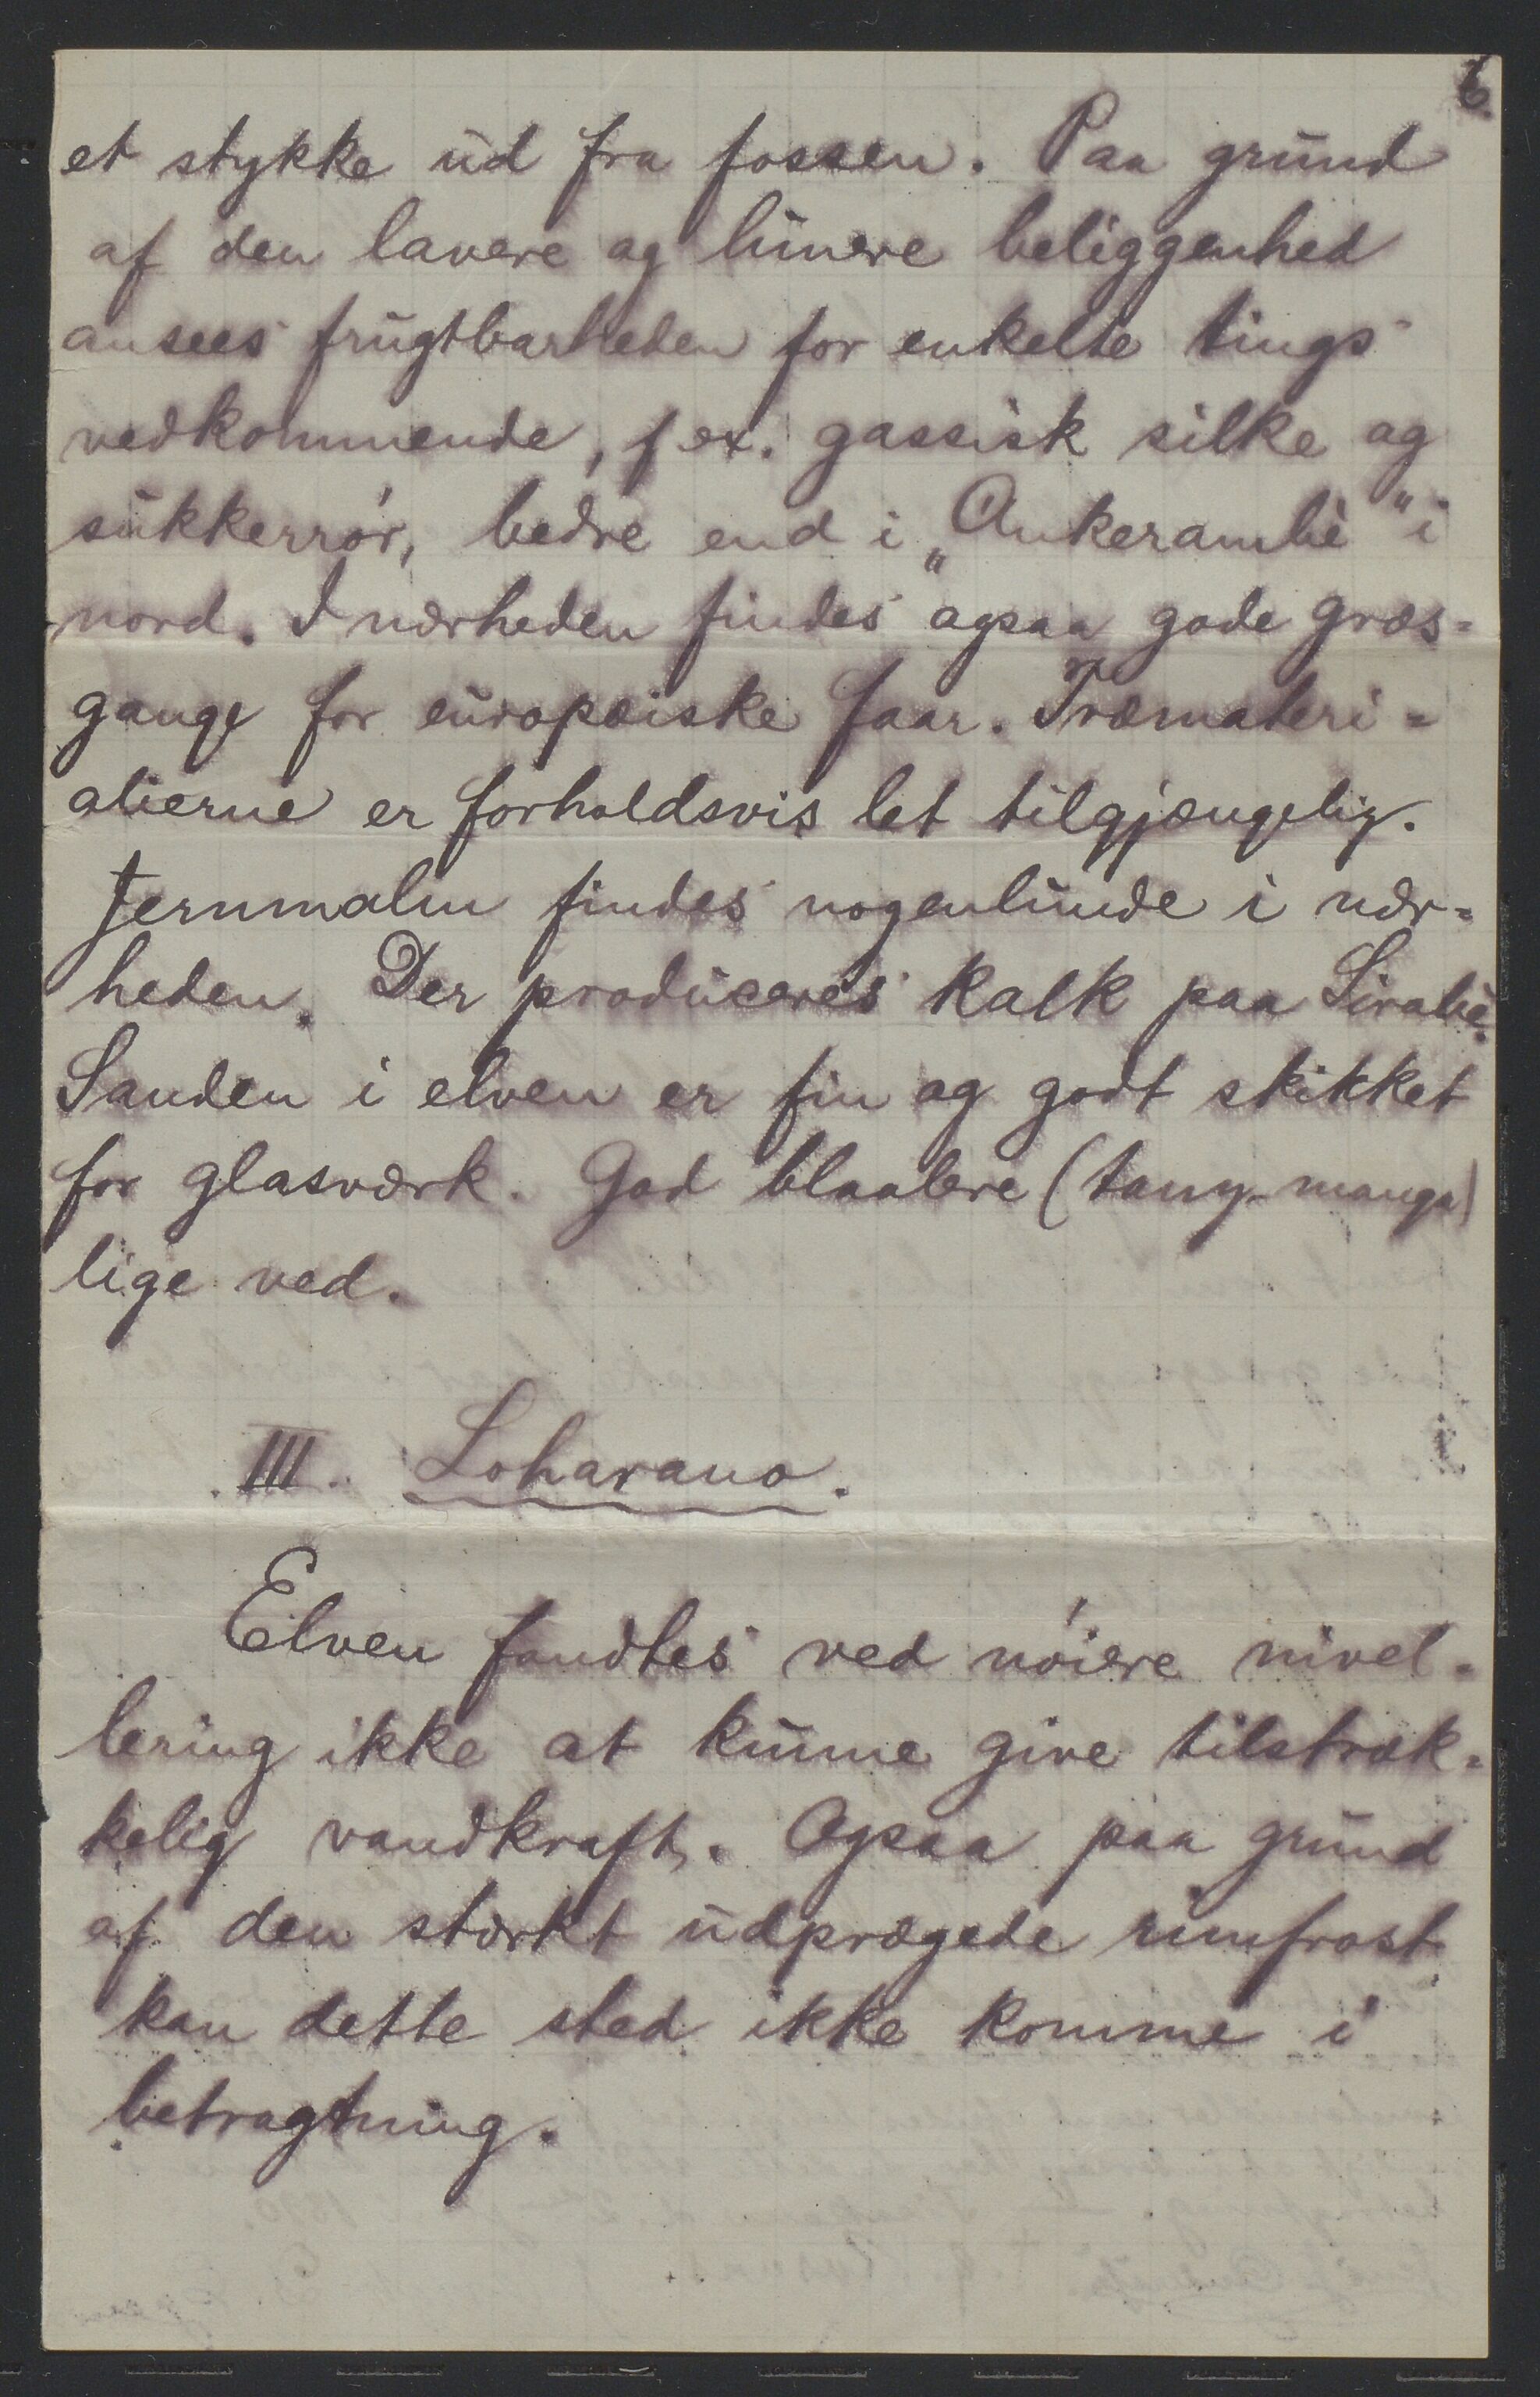 6.
et stykke ud fra fossen. Paa grund
af den lavere og lunere beliggenhed
ansees frugtbarheden for enkelte tings
vedkommende, f ex. gassisk silke og
sukkerrór, bedre end i „Ankerambè" i
nord. I nærheden findes ogsaa gode græs-
gange for europæiske faar. Træmateri-
alierne er forholdsvis let tilgjængelig.
Jernmalm findes nogenlunde i nær-
heden. Der produceres kalk paa Sirabè.
Sanden i elven er fin og godt skikket
for glasværk. God blaalere (tany-manga)
lige ved.
III. Loharano.
Elven fandtes ved nóiere nivel-
lering ikke at kunne give tilstræk-
kelig vandkraft. Ogsaa paa grund
af den stærkt udprægede rimfrost
kan dette sted ikke komme i
betragtning.